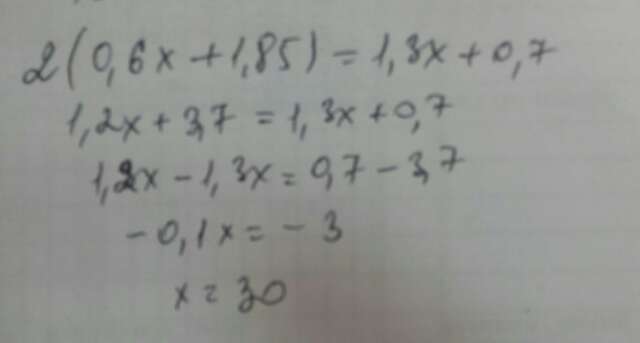 2(0,6x+1,85)=1,3x+0,7
1,2x+3,7=1,3x+0,7
1,2x-1,3x=0,7-3,7
-0,1x=-3
x=30